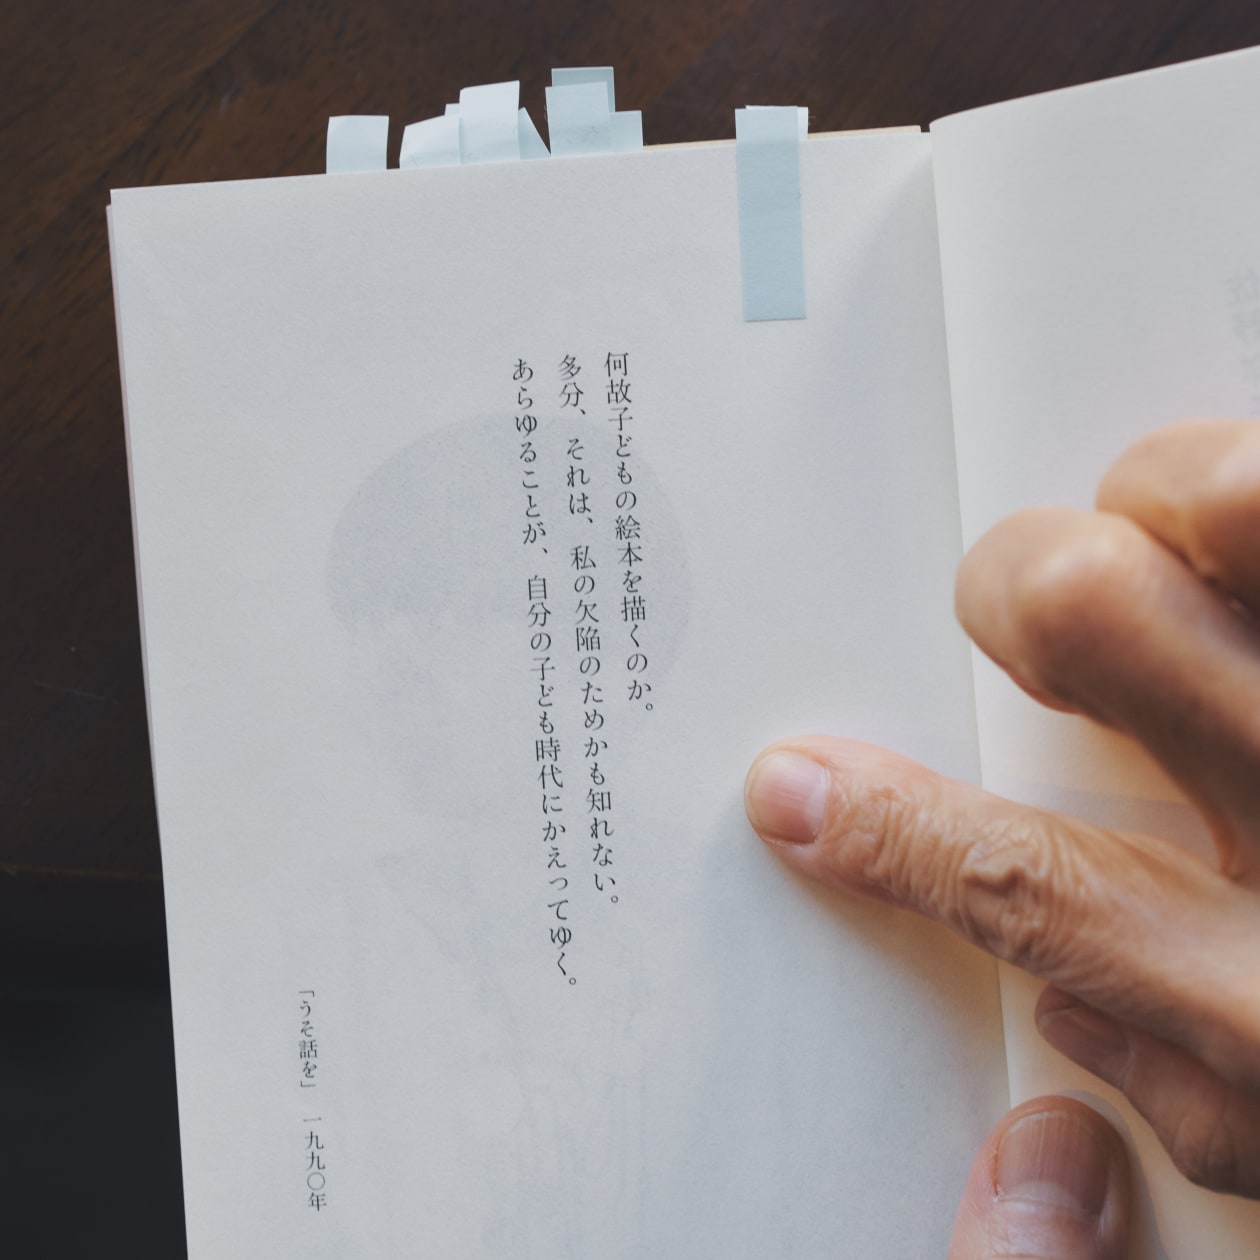 何故子どもの絵本を描くのか。
多分、それは、私の欠陥のためかも知れない。
あらゆることが、自分の子ども時代にかえってゆく。
「うそ話を」 一九九〇年